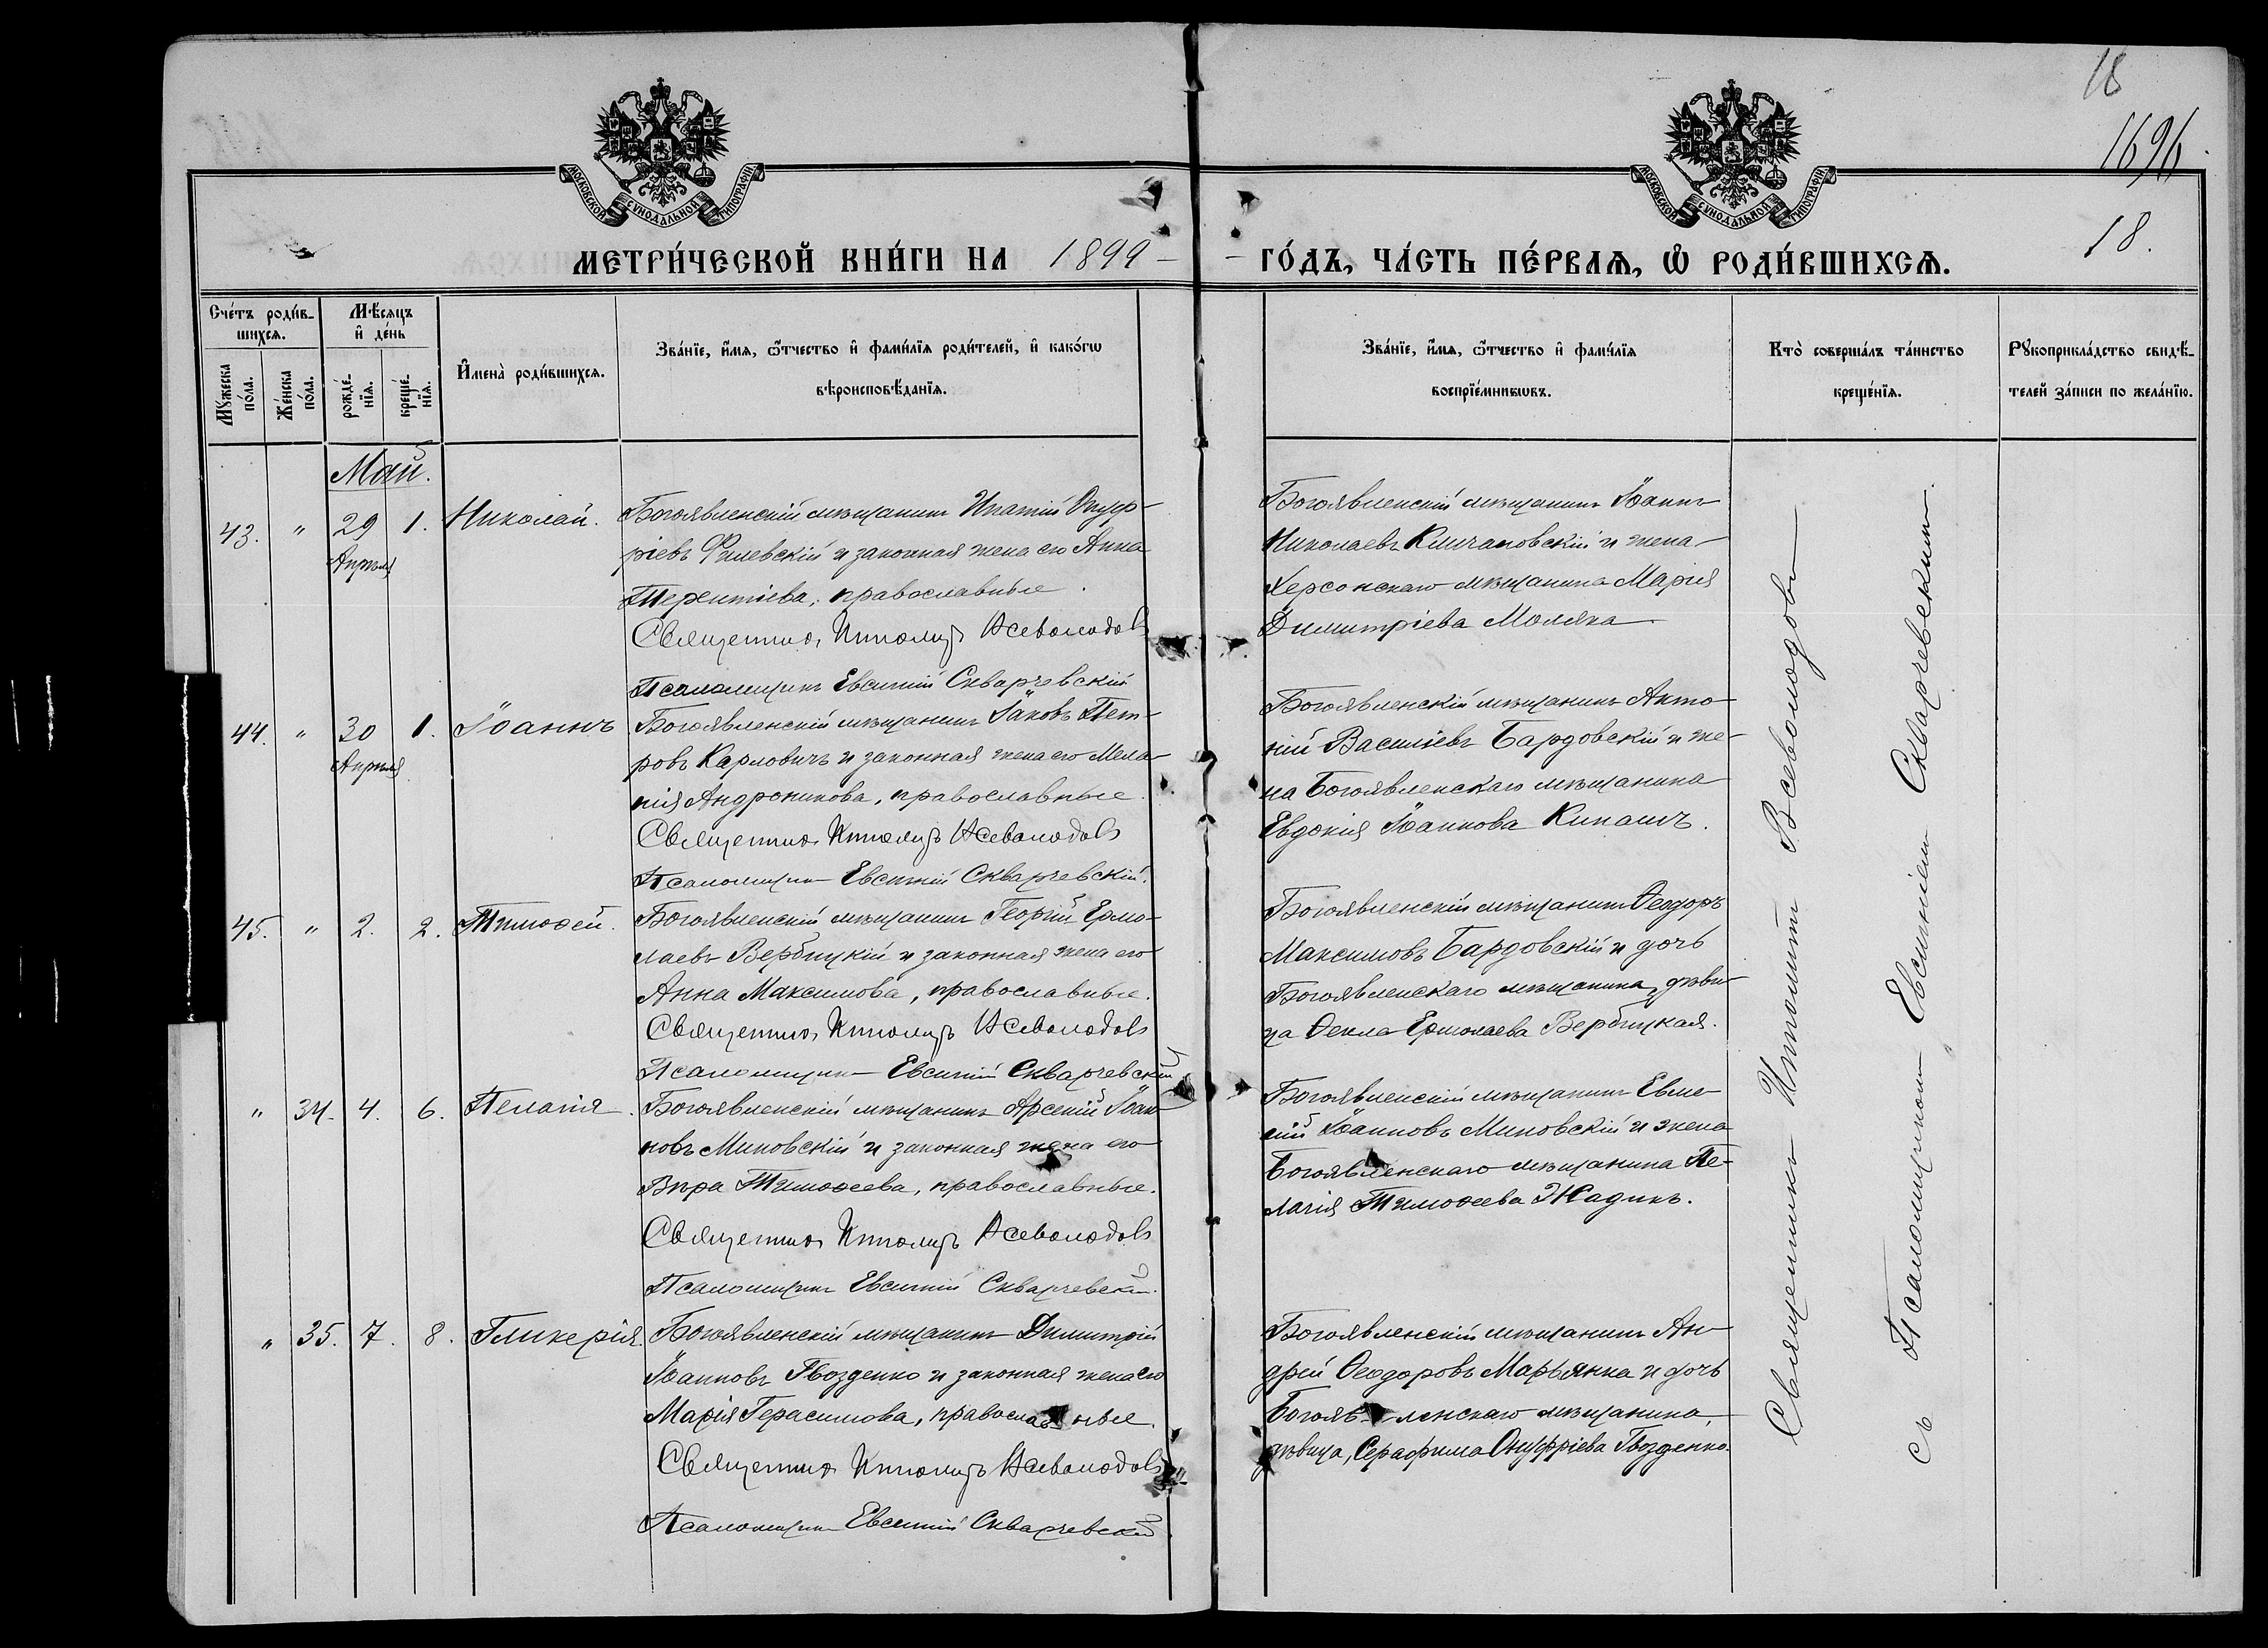 18
1696
МОСКОВСКОЙ СѴНОДАЛЬНОЙ ТИПОГРАФІИ
МОСКОВСКОЙ СѴНОДАЛЬНОЙ ТИПОГРАФІИ
МЕТРИ́ЧЕСКОЙ КНИ́ГИ НА 1899 – – ГО́ДЪ, ЧА́СТЬ ПЕ́РВАѦ, Ѡ РОДИ́ВШИХСѦ.
18.
Сче́тъ роди́в-
шихсѧ.
Мꙋжеска
по́ла.
Же́нска
по́ла.
Мѣ́сяцъ
и҆ де́нь
рожде́-
нїѧ.
креще́-
нїѧ.
И҆мена̀ роди́вшихсѧ.
Зва́нїе, и҆́мѧ, ѻ҆́тчество и҆ фами́лїѧ роди́телей, и҆ како́гѡ
вѣроисповѣ́данїѧ.
Зва́нїе, и҆́мѧ, ѻ҆́тчество и҆ фами́лїѧ
воспрїе́мникѡвъ.
Кто̀ соверша́лъ та́инство
креще́нїѧ.
Рꙋкоприкла́дство свидѣ́-
телей за́писи по жела́нїю.
Май.
43. " 29 1. Николай.
Апрѣля
Богоявленскій мѣщанинъ Ипатій Онуф-
ріевъ Филевскій и законная жена его Анна
Терентіева, православные.
Священникъ Ипполитъ Всеволодовъ
Псаломщикъ Евсигній Скварчевскій
Богоявленскій мѣщанинъ Іоаннъ
Николаевъ Климановскій и жена
Херсонскаго мѣщанина Марія
Димитріева Моляка
44. " 30 1. Іоаннъ
Апрѣля
Богоявленскій мѣщанинъ Іаковъ Пет-
ровъ Карловичъ и законная жена его Мела-
нія Андроникова, православные.
Священникъ Ипполитъ Всеволодовъ
Псаломщикъ Евсигній Скварчевскій.
Богоявленскій мѣщанинъ Анто-
ній Василіевъ Бардовскій и же-
на Богоявленскаго мѣщанина
Евдокія Іоаннова Кипаичъ.
45. " 2. 2. Тимоѳей.
Богоявленскій мѣщанинъ Георгій Ермо-
лаевъ Вербицкій и законная жена его
Анна Максимова, православные.
Священникъ Ипполитъ Всеволодовъ
Псаломщикъ Евсигній Скварчевскій
Богоявленскій мѣщанинъ Ѳеодоръ
Максимовъ Бардовскій и дочь
Богоявленскаго мѣщанина, дѣви-
ца Ѳекла Ермолаева Вербицкая.
" 34. 4. 6. Пелагія.
Богоявленскій мѣщанинъ Арсеній Іоан-
новъ Миновскій и законная жена его
Вѣра Тимоѳеева, православные.
Священникъ Ипполитъ Всеволодовъ
Псаломщикъ Евсигній Скварчевскій.
Богоявленскій мѣщанинъ
Іоанновъ Миновскій и жена
Богоявленскаго мѣщанина Пе-
лагія Тимоѳеева Жадикъ.
" 35. 7. 8. Гликерія.
Богоявленскій мѣщанинъ Димитрій
Іоанновъ Гвозденко и законная жена его
Марія Герасимова, православные.
Священникъ Ипполитъ Всеволодовъ
Псаломщикъ Евсигній Скварчевскій
Богоявленскій мѣщанинъ Ан-
дрей Ѳеодоровъ Марьянка и дочь
Богоявленскаго мѣщанина,
дѣвица, Серафима Онуфріева Гвозденко.
Священникъ Ипполитъ Всеволодовъ
съ Псаломщикомъ Евсигніемъ Скварчевскимъ.